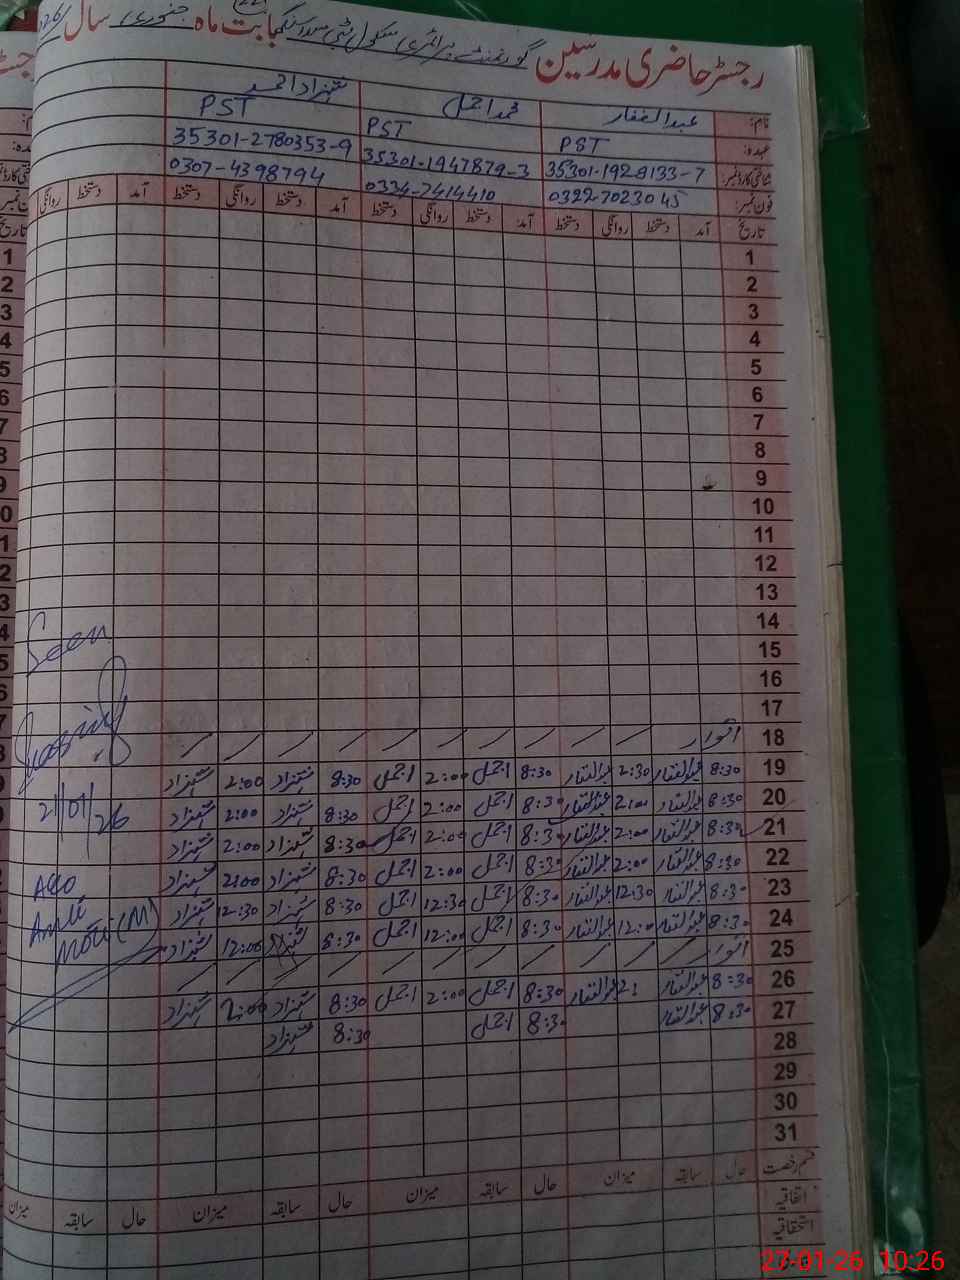 رجسٹر حاضری مدرسین گورنمنٹ پرائمری سکول بابت ماہ جنوری سال
نام: عبدالغفار محمد اجمل شہزاد احمد
عہدہ: PST PST PST
شناختی کارڈ نمبر: 35301-1928133-7 35301-1947879-3 35301-2780353-9
فون نمبر: 0322-7023045 0334-7414410 0307-4398794
تاریخ آمد دستخط روانگی دستخط آمد دستخط روانگی دستخط آمد دستخط روانگی دستخط آمد دستخط روانگی
1
2
3
4
5
6
7
8
9
10
11
12
13
14
15
16
17
18 اتوار
19 8:30 عبدالغفار 2:30 عبدالغفار 8:30 اجمل 2:00 اجمل 8:30 شہزاد 2:00 شہزاد
20 8:30 عبدالغفار 2:00 عبدالغفار 8:30 اجمل 2:00 اجمل 8:30 شہزاد 2:00 شہزاد
21 8:30 عبدالغفار 2:00 عبدالغفار 8:30 اجمل 2:00 اجمل 8:30 شہزاد 2:00 شہزاد
22 8:30 عبدالغفار 2:00 عبدالغفار 8:30 اجمل 2:00 اجمل 8:30 شہزاد 2:00 شہزاد
23 8:30 عبدالغفار 12:30 عبدالغفار 8:30 اجمل 12:30 اجمل 8:30 شہزاد 12:30 شہزاد
24 8:30 عبدالغفار 12:00 عبدالغفار 8:30 اجمل 12:00 اجمل 8:30 شہزاد 12:00 شہزاد
25 اتوار
26 8:30 عبدالغفار 2: عبدالغفار 8:30 اجمل 2:00 اجمل 8:30 شہزاد 2:00 شہزاد
27 8:30 عبدالغفار 8:30 اجمل 8:30 شہزاد
28
29
30
31
Seen
21/01/26
AEO
(M)
قسم رخصت حال سابقہ میزان حال سابقہ میزان حال سابقہ میزان حال سابقہ میزان
اتفاقیہ
استحقاقیہ
27-01-26 10:26